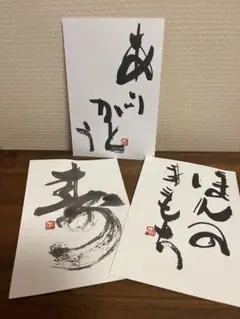 ありがとう
寿
ほんの
きもち